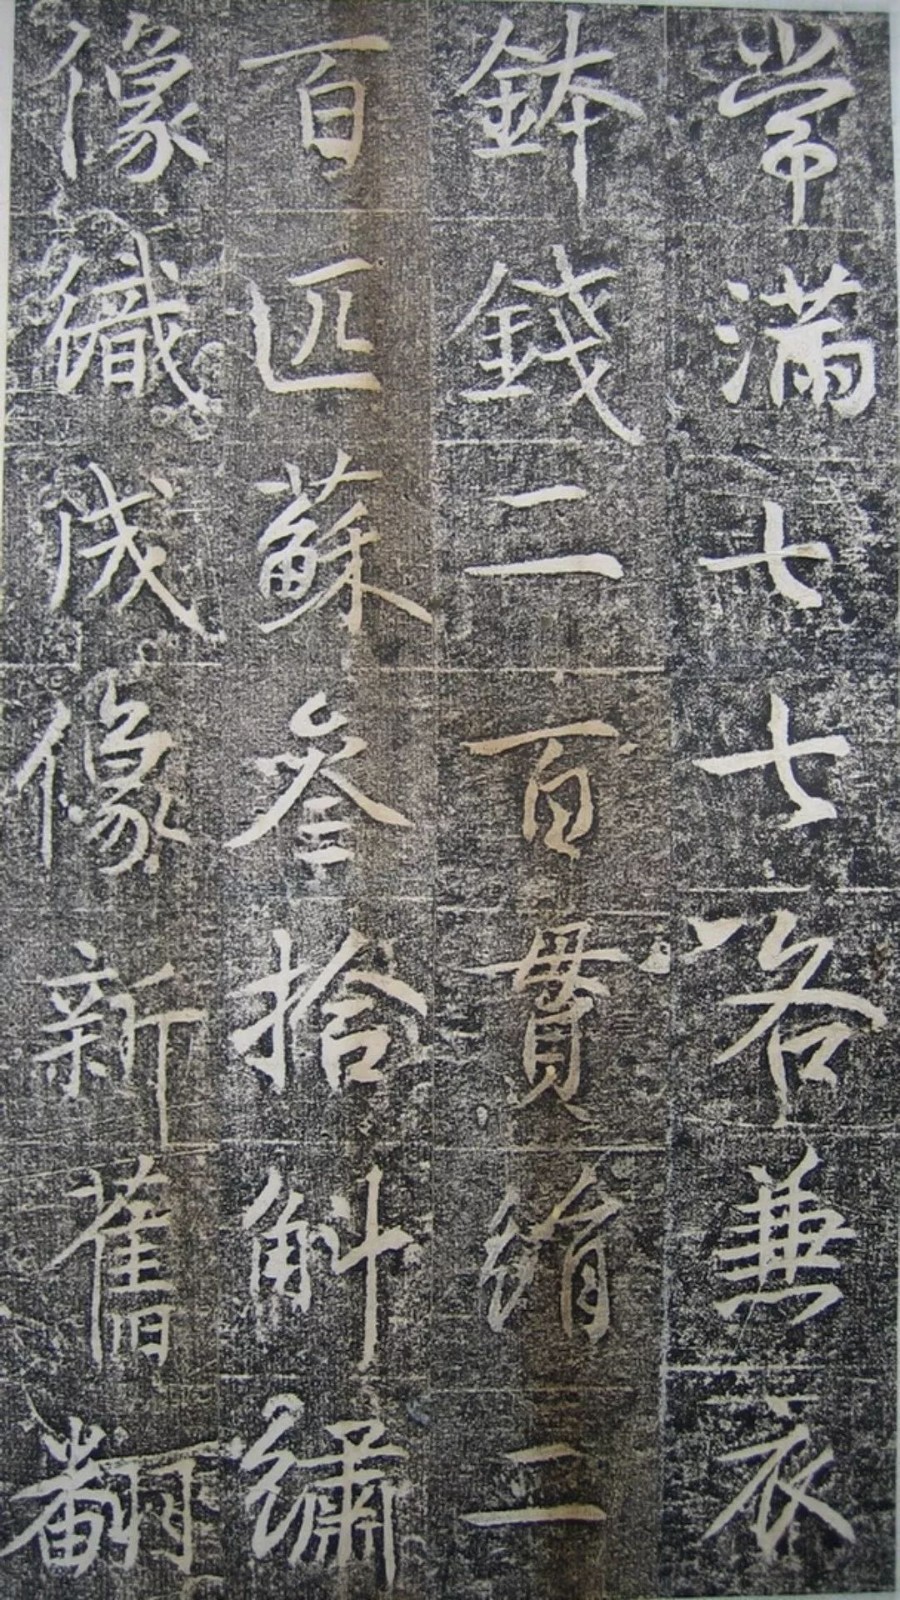 常滿七七各兼衣
鉢錢二百貫絹二
百匹蘇叁拾斛繡
像織成像新舊翻